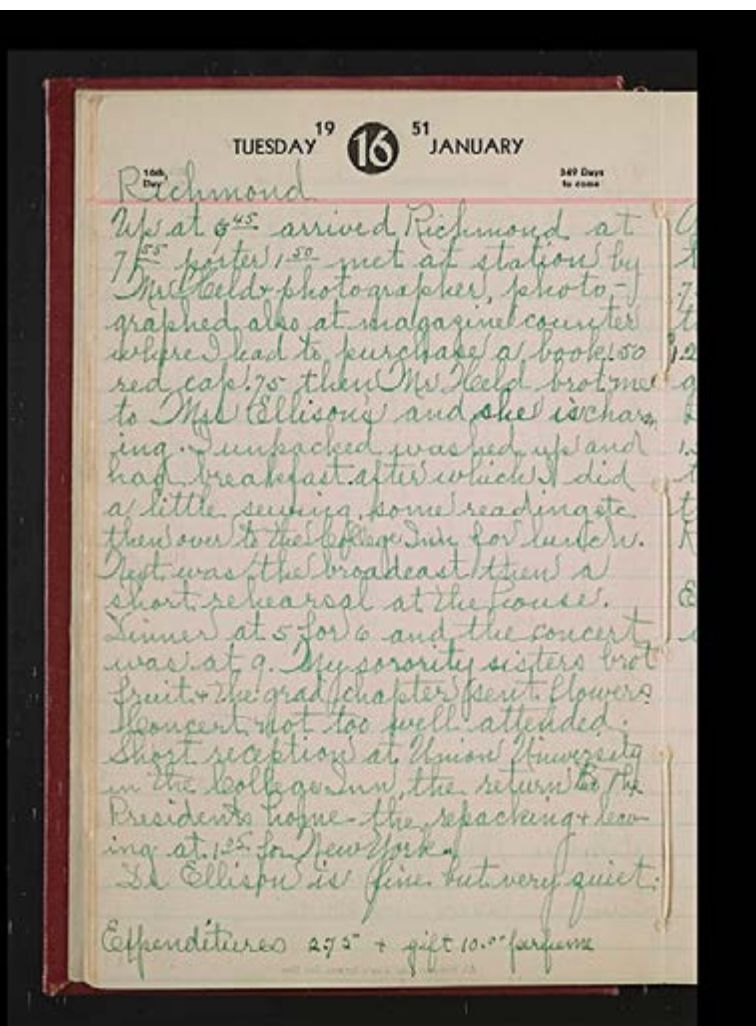 TUESDAY 19 16 51 JANUARY
16th Day
349 Days to come
Richmond
Up at 6 45 arrived Richmond at
7 55 porter 1 50 met at station by
Mr. Held + photographer, photo-
graphed also at magazine counter
where I had to purchase a book .50
red cap .75 then Mr Held brot me
to Mrs Ellison's and she is charm
ing. I unpacked washed up and
had breakfast after which I did
a little sewing, some reading etc
then over to the College Inn for lunch.
Next was the broadcast then a
short rehearsal at the house.
Dinner at 5 for 6 and the concert
was at 9. My sorority sisters brot
fruit + the grad chapter sent flowers
Concert not too well attended.
Short reception at Union University
in the College Inn, the return to the
Presidents home - the repacking + leav
ing at 1 25 for New York.
Dr Ellison is fine but very quiet.
Expenditures 275 + gift 10.00 perfume